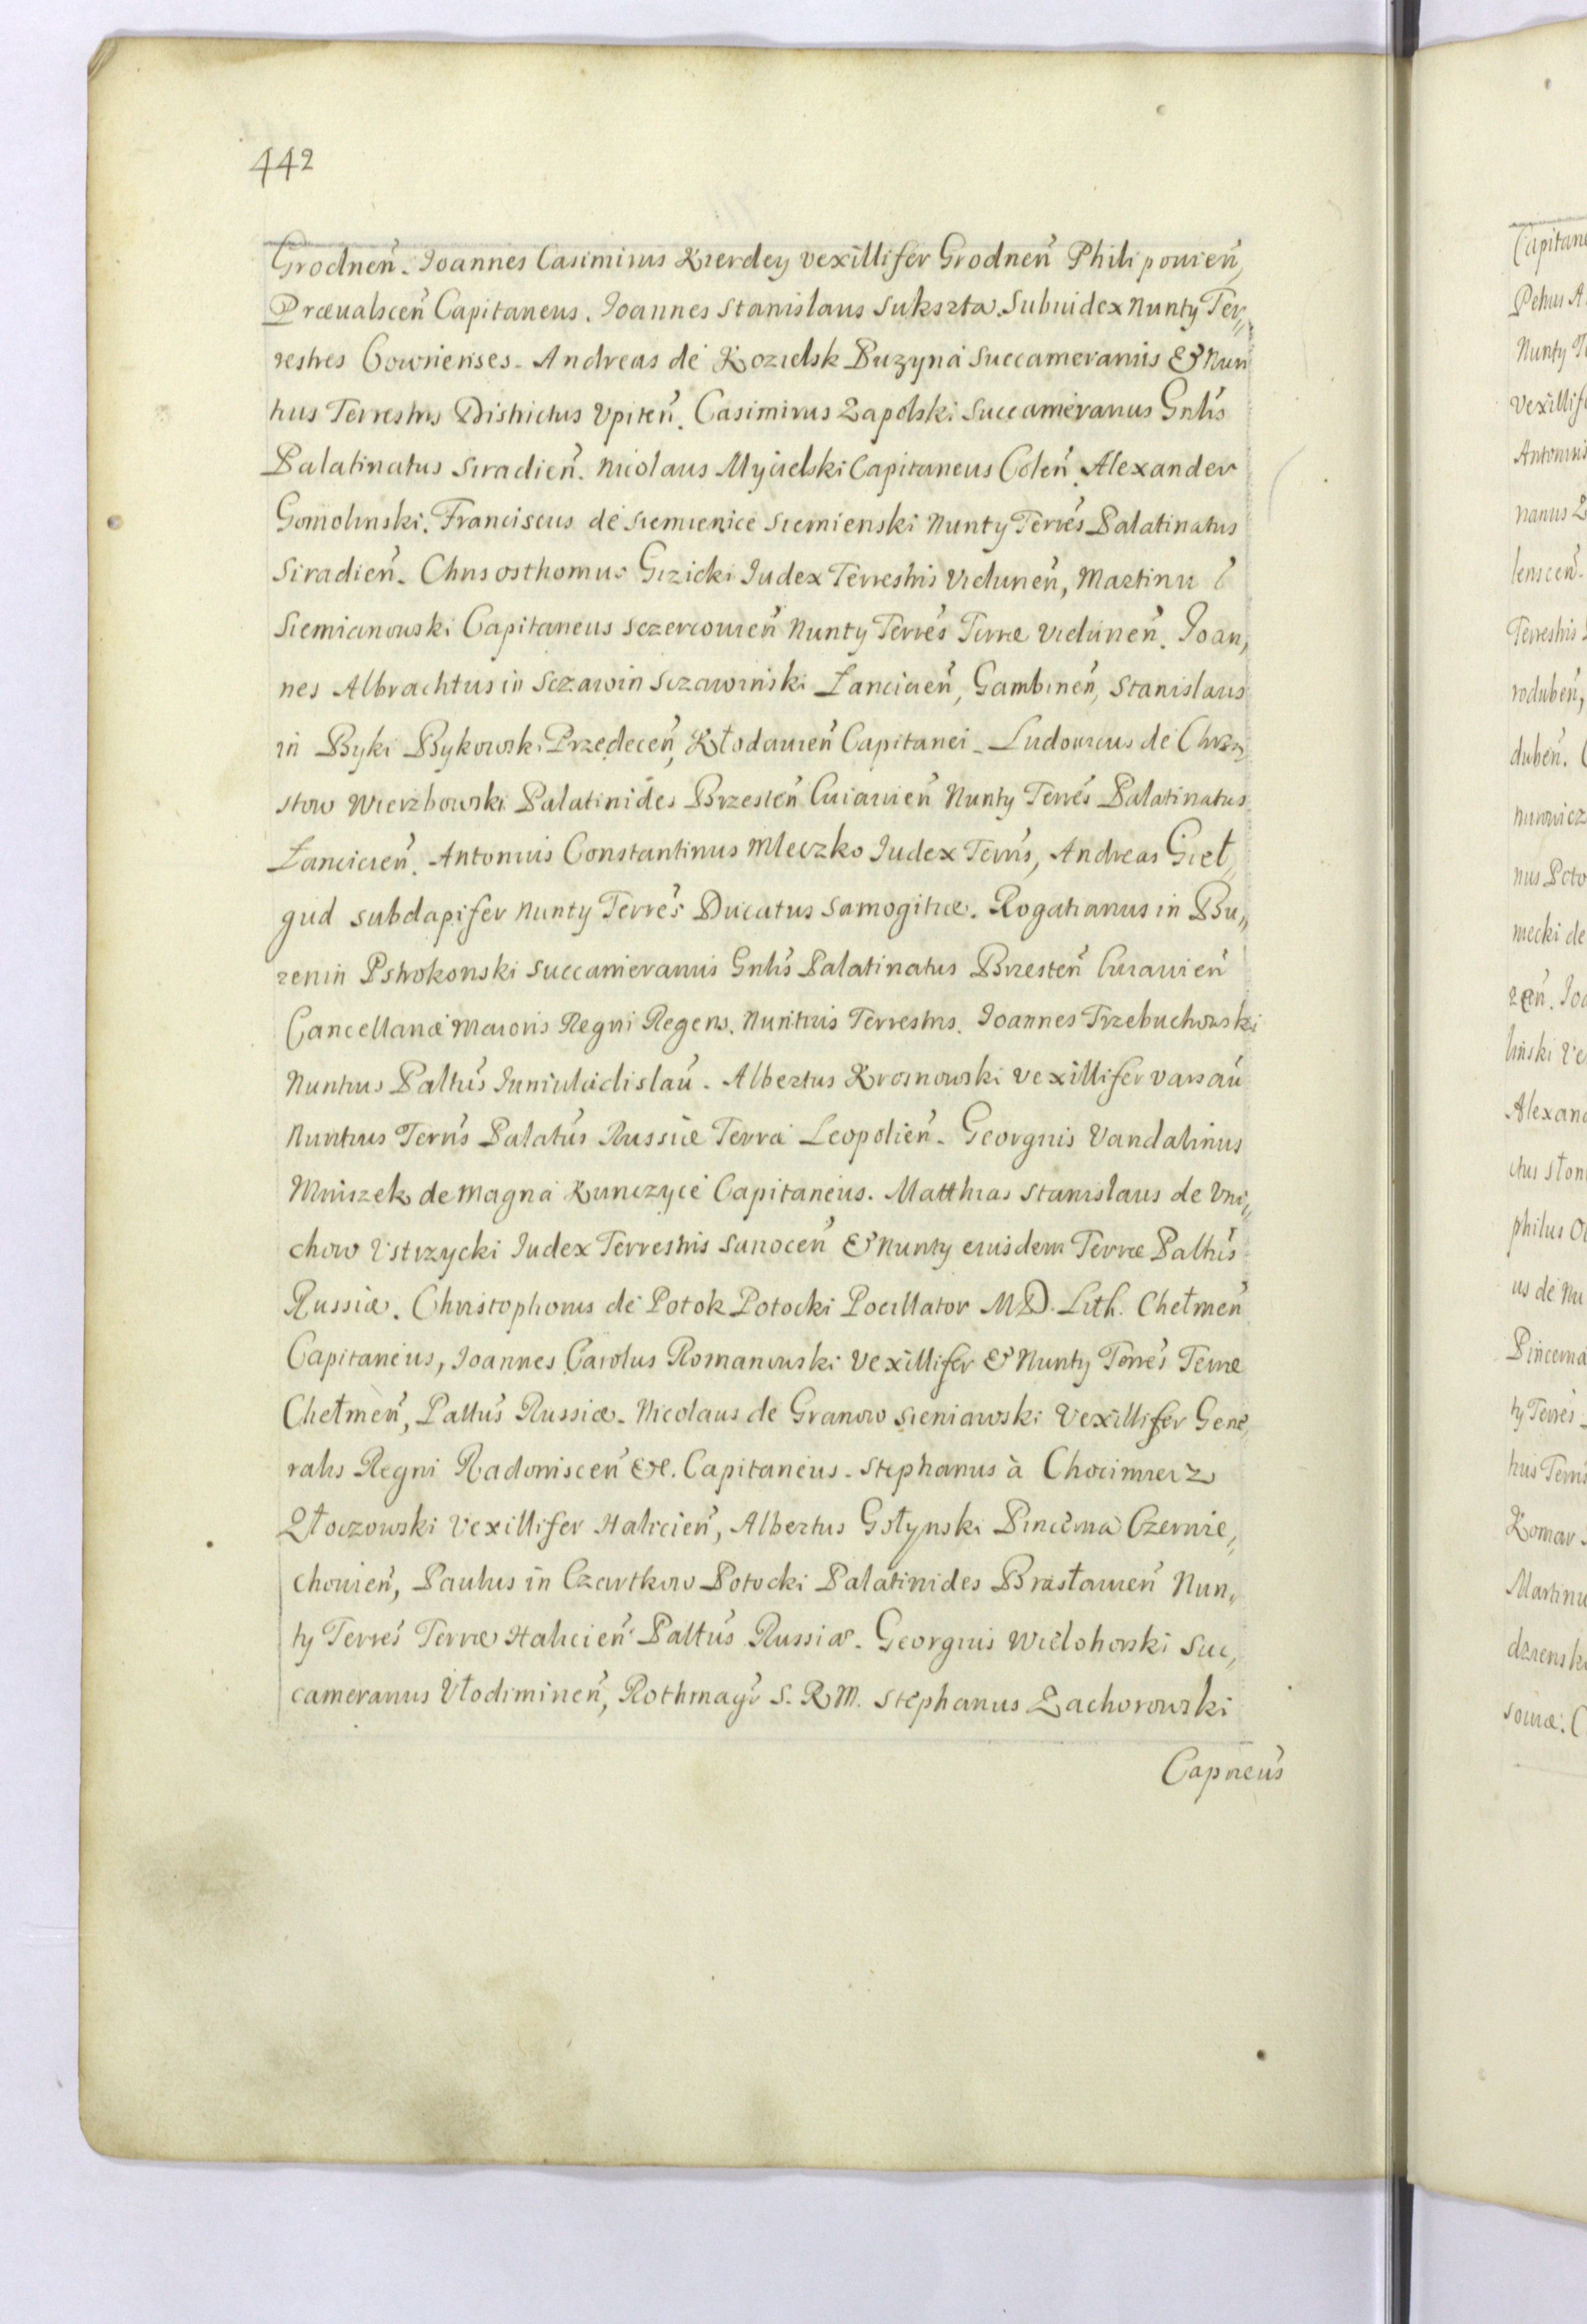 442
Grodneñ. Joannes Casimirus Kierdey Vexillifer Grodneñ Philipouieñ,
Præualsceñ Capitaneus. Joannes Stanislaus Sukszta Subiudex Nuntÿ Ter,,
restres Cownenses. Andreas de Kozielsk Puzyna Succamerarius & Nun
tius Terrestris Districtus Vpiteñ. Casimirus Zapolski Succamerarius Gnlis
Palatinatus Siradieñ. Nicolaus Mycielski Capitaneus Coleñ. Alexander
Gomolinski. Franciscus de Siemienice Siemienski Nuntÿ Terres Palatinatus
Siradieñ. Chrisosthomus Gizicki Judex Terrestris Vieluneñ, Martinu
Siemianouski Capitaneus Sczercouieñ Nuntÿ Terres Terræ Vieluneñ. Joan,
nes Albrachtus in Sczawin Sczawinski Łancicieñ, Gambineñ, Stanislaus
in Byki Bykowski Przedeceñ, Kłodauieñ Capitanei. Ludouicus de Chrzą,
stow Wierzbowski Palatinides Brzesteñ Cuiauieñ Nuntÿ Terres Palatinatus
Łancicieñ. Antonius Constantinus Mleczko Judex Terris, Andreas Gieł,,
gud Subdapifer Nuntÿ Terres Ducatus Samogitiæ. Rogatianus in Bu,,
zenin Pstrokonski Succamerarius Gnlis Palatinatus Brzesteñ Cuiauieñ
Cancellariæ Maioris Regni Regens. Nuntius Terrestris. Joannes Trzebuchowski
Nuntius Paltus Juniuladislau. Albertus Krosnowski Vexillifer Varsau
Nuntius Terris Palatus Russiæ Terra Leopolieñ. Georgius Vandalinus
Mniszek de Magna Kunczyce Capitaneus. Matthias Stanislaus de Vni,,
chow Vstrzycki Judex Terrestris Sanoceñ & Nuntÿ eiusdem Terræ Paltus
Russiæ. Christophorus de Potok Potocki Pocillator M D. Lith. Chełmeñ
Capitaneus, Joannes Carolus Romanouski Vexillifer & Nuntÿ Terres Terræ
Chełmeñ, Paltus Russiæ. Nicolaus de Granow Sieniawski Vexillifer Gene,
ralis Regni Radomsceñ &c. Capitaneus. Stephanus à Chocimierz
Złoczowski Vexillifer Halicieñ, Albertus Gołynski Pincerna Czernie,,
chouieñ, Paulus in Czartkow Potocki Palatinides Brasłauieñ Nun,,
tÿ Terres Terræ Halicieñ Paltus Russiæ. Georgius Wielohorski Suc,
camerarius Vłodimineñ, Rothmagr S. R M. Stephanus Zachorowski
Capneus